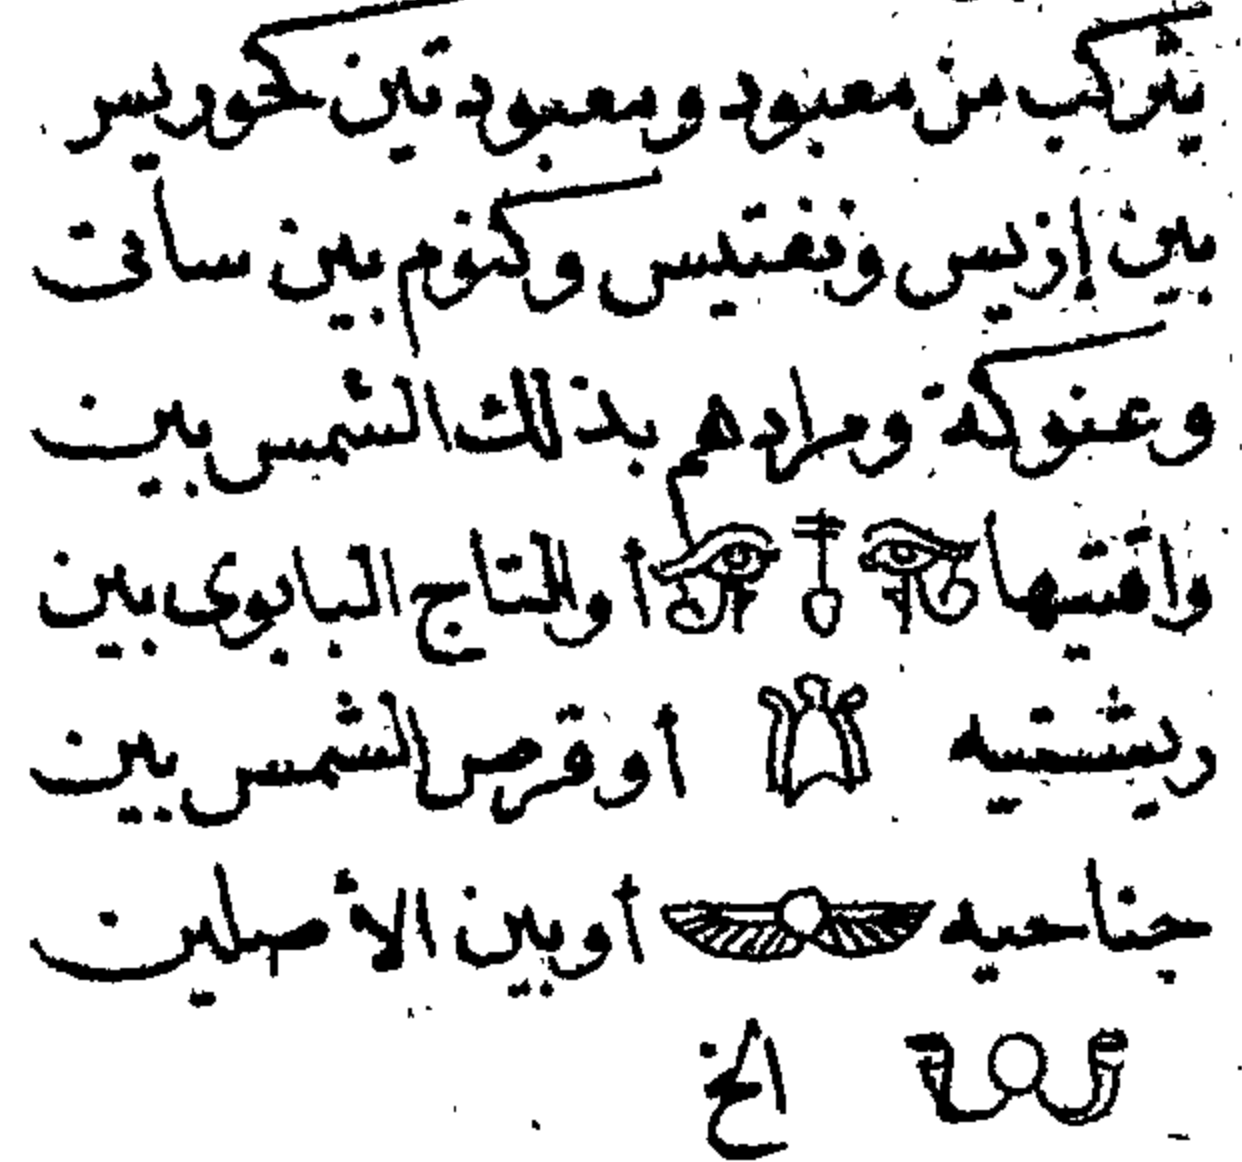 يتركب من معبود ومعبودتين كحوريس
بين إزيس ونفتيس وكنوم بين ساتى
وعنوكة ومرادهم بذلك الشمس بين
واقتيها أ والتاج البابوى بين
ريشتيه أوقرص الشمس بين
جناحيه أوبين الأصلين
الخ